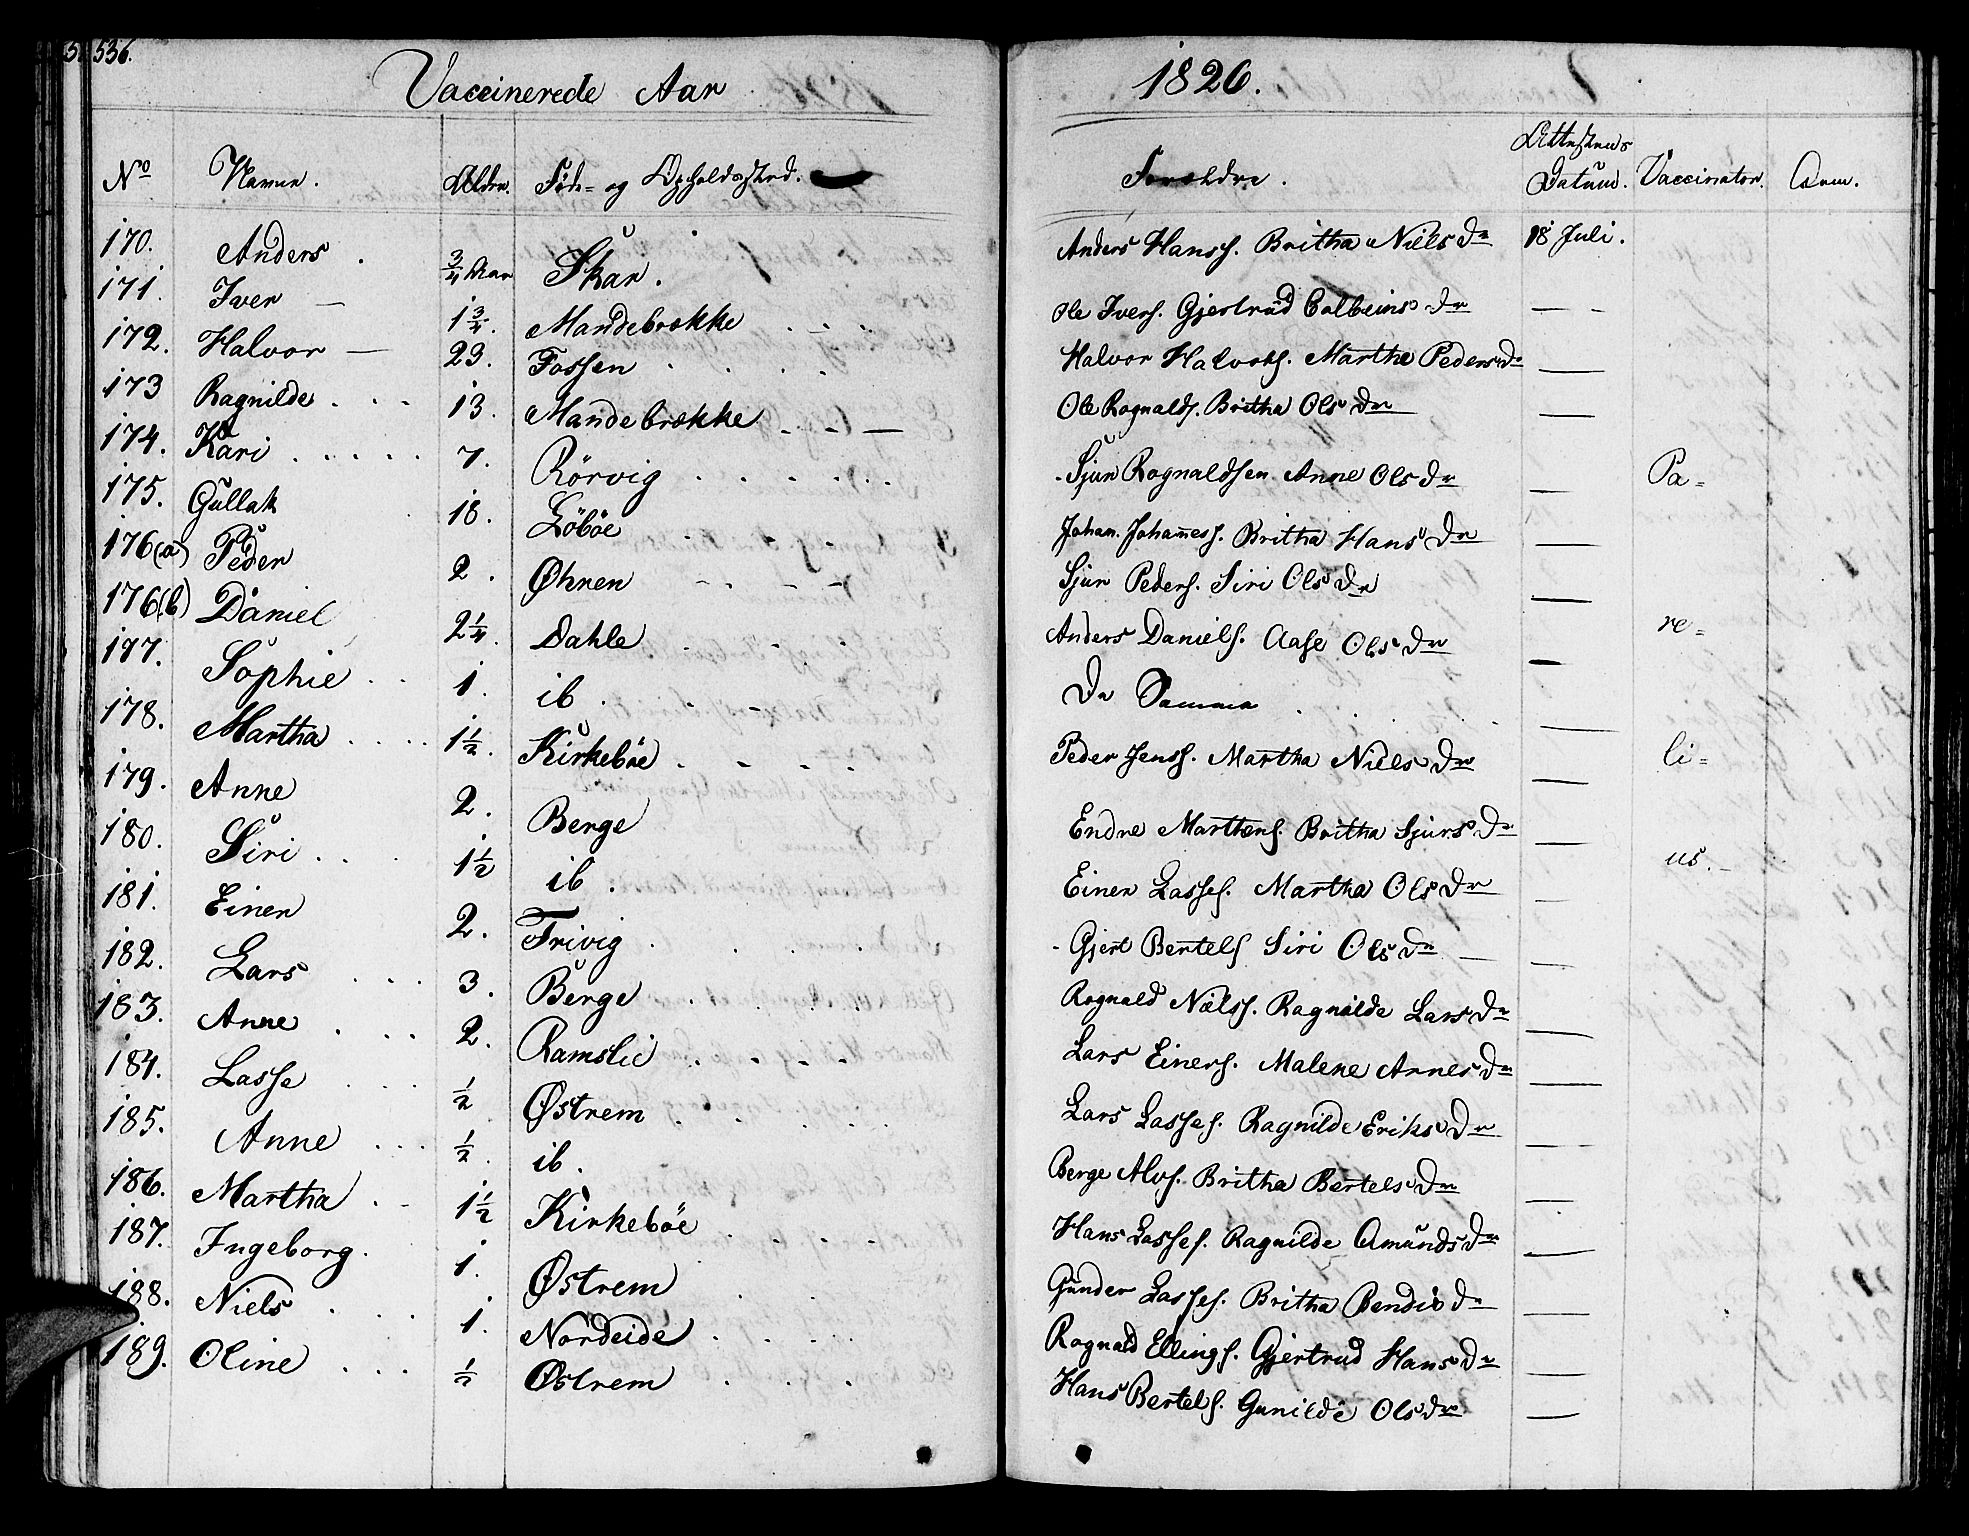 536.
Vaccinerede Aar 1826.
No Navne. Alder. Føde- og Opholdssted. Forældre. Attestens Datum. Vaccinator. Anm.
170. Anders. 3/4 Aar Skar. Anders Hanss. Britha Niels Dr 18 Juli.
171. Iver — 1 3/4. Mandebrække . . . Ole Ivers. Gjertrud Colbeins Dr — -
172. Halvor — 23. Fossen . . . . Halvor Halvors. Martha Peders Dr —
173 Ragnilde . . . 13. Mandebrække - - — Ole Rognalds. Britha Ols Dr —
174. Kari . . . . . 7. Rörvig . . . . . . Sjur Rognaldsen Anne Ols Dr — Pa=
175. Gullak 18. Löböe . . . . Johan. Johannes. Britha Hans Dr —
176(a) Peder 2. Øhren - - - - Sjur Peders. Siri Ols Dr —
176(b) Daniel 2 1/4. Dahle . . . . Anders Daniels. Aase Ols Dr — re=
177. Sophie . . 1. ib. . . - De Samme . . . . —
178. Martha . . . . 1 1/2. Kirkeböe . - - . Peder Jenss. Martha Niels Dr — li=
179. Anne 2. Berge Endre Mortens. Britha Sjurs Dr —
180. Siri . . 1 1/2 ib. Einer Lasses. Martha Ols Dr — us. -
181. Einer 2. Trivig . . . . Gjert Bertels Siri Ols Dr — —
182. Lars . . . 3. Berge . . . . Rognald Niels. Ragnilde Lars Dr —
183. Anne . . . 2. Ramslie . - - - Lars Einers. Malene Arnes Dr —
184. Lasse . . . 1/2 Østrem . . . . . Lars Lasses. Ragnilde Eriks Dr —
185. Anne . . . 1/2. ib. Berge Alvs. Britha Bertels Dr —
186. Martha . - 1 1/2 Kirkeböe . . . . . Hans Lasses. Ragnilde Amunds Dr —
187. Ingeborg. 1. Østrem . . . Gunder Lasses. Britha Bendis Dr —
188. Niels . . . 1. Nordeide . . . . Rognald Ellings. Gjertrud Hans Dr —
189. Oline . . . 1/2 Østrem . . . Hans Bertels. Gunilde Ols Dr —